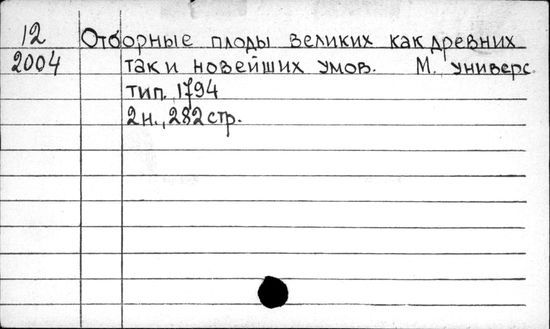 12 Отборные плоды великих как древних
2004 так и новейших умов. М. универс.
тип. 1794
2 н., 282 стр.